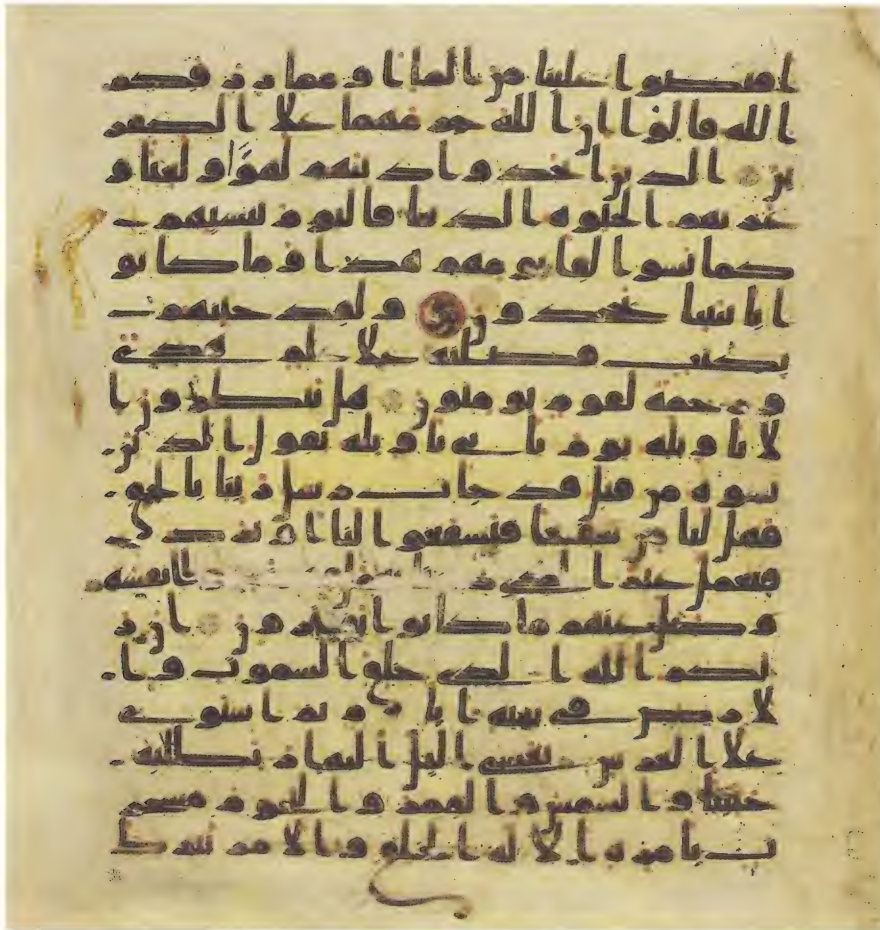 افيضوا علينا من الما او مما رزقكم
الله قالوا ان الله حرمهما علا الكفر
ين الذين اتخذوا دينهم لهوا ولعبا و
غرتهم الحيوة الدنيا فاليوم ننسيهم
كما نسوا لقا يومهم هذا وما كانو
ا بايتنا يجحدون ولقد جينهم
بكتب فصلنه علا علم هدى
ورحمة لقوم يومنون هل ينظرون ا
لا تاويله يوم ياتي تاويله يقول الذين
نسوه من قبل قد جات رسل ربنا بالحق
فهل لنا من شفعا فيشفعوا لنا او نرد
فنعمل غير الذي
وضل عنهم ما كانوا يفترون ان ر
بكم الله الذي خلق السموت وا
لارض في ستة ايام ثم استوى
علا العرش يغشي اليل النهار يطلبه
حثيثا والشمس والقمر والنجوم مسخر
ت بامره الا له الخلق والامر تبرك